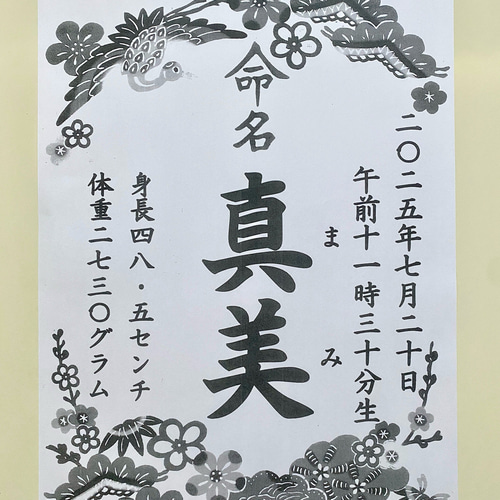 二〇二五年七月二十日
午前十一時三十分生
命名
真美
まみ
身長四八・五センチ
体重二七三〇グラム